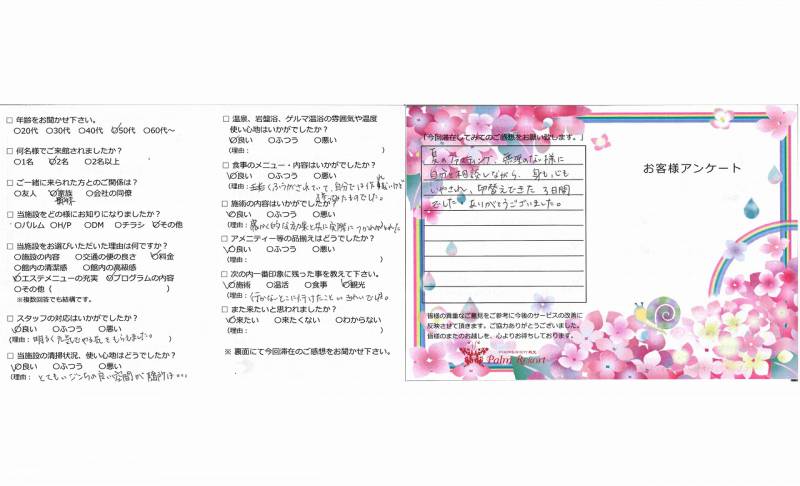 □ 年齢をお聞かせ下さい。
○20代 ○30代 ○40代 ○50代 ○60代〜
□ 何名様でご来館されましたか？
○1名 ○2名 ○2名以上
□ ご一緒に来られた方とのご関係は？
○友人 ○家族 ○会社の同僚
□ 当施設をどの様にお知りになりましたか？
○パルム ○H/P ○DM ○チラシ ○その他
□ 当施設をお選びいただいた理由は何ですか？
○施設の内容 ○交通の便の良さ ○料金
○館内の清潔感 ○館内の高級感
○エステメニューの充実 ○プログラムの内容
○その他（ ）
※複数回答でも結構です。
□ スタッフの対応はいかがでしたか？
○良い ○ふつう ○悪い
(理由: 明るく元気
□ 当施設の清掃状況、使い心地はどうでしたか？
○良い ○ふつう ○悪い
(理由: とても
□ 温泉、岩盤浴、ゲルマ温浴の雰囲気や温度
使い心地はいかがでしたか？
○良い ○ふつう ○悪い
(理由: )
□ 食事のメニュー・内容はいかがでしたか？
○良い ○ふつう ○悪い
(理由:
□ 施術の内容はいかがでしたか？
○良い ○ふつう ○悪い
(理由:
□ アメニティー等の品揃えはどうでしたか？
○良い ○ふつう ○悪い
(理由: )
□ 次の内一番印象に残った事を教えて下さい。
○施術 ○温活 ○食事 ○観光
(理由: 行かないとこに行けたこと
□ また来たいと思われましたか？
○来たい ○来たくない ○わからない
(理由: )
※ 裏面にて今回滞在のご感想をお聞かせ下さい。
「今回滞在してみてのご感想をお願い致します。」
夏の
自分と相談しながら、身も心も
3日間
でした。ありがとうございました。
皆様の貴重なご意見をご参考に今後のサービスの改善に
反映させて頂きます。ご協力ありがとうございました。
皆様のまたのお越しを、心よりお待ちしております。
Palm Resort
お客様アンケート